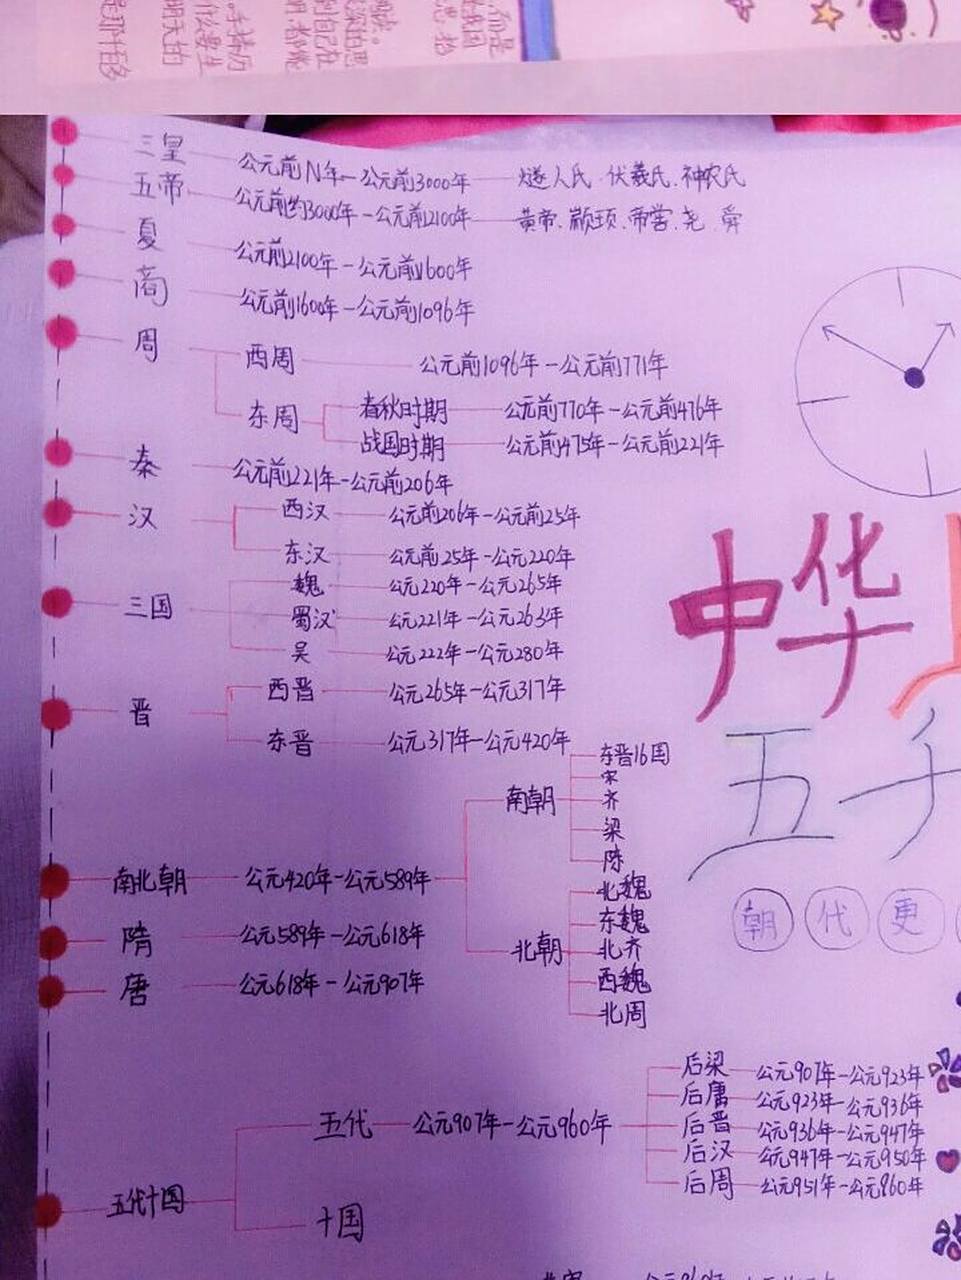 三皇 公元前N年-公元前3000年 燧人氏.伏羲氏.神农氏
五帝 公元前约3000年-公元前2100年 黄帝.颛顼.帝喾.尧.舜
夏 公元前2100年-公元前1600年
商 公元前1600年-公元前1096年
周
西周 公元前1096年-公元前771年
东周
春秋时期 公元前770年-公元前476年
战国时期 公元前475年-公元前221年
秦 公元前221年-公元前206年
汉
西汉 公元前206年-公元前25年
东汉 公元前25年-公元220年
三国
魏 公元220年-公元265年
蜀汉 公元221年-公元263年
吴 公元222年-公元280年
晋
西晋 公元265年-公元317年
东晋 公元317年-公元420年
南北朝 公元420年-公元589年
南朝
东晋16国
宋
齐
梁
陈
北朝
北魏
东魏
北齐
西魏
北周
隋 公元589年-公元618年
唐 公元618年-公元907年
五代十国
五代 公元907年-公元960年
后梁 公元907年-公元923年
后唐 公元923年-公元936年
后晋 公元936年-公元947年
后汉 公元947年-公元950年
后周 公元951年-公元960年
十国
中华
五千
朝代更